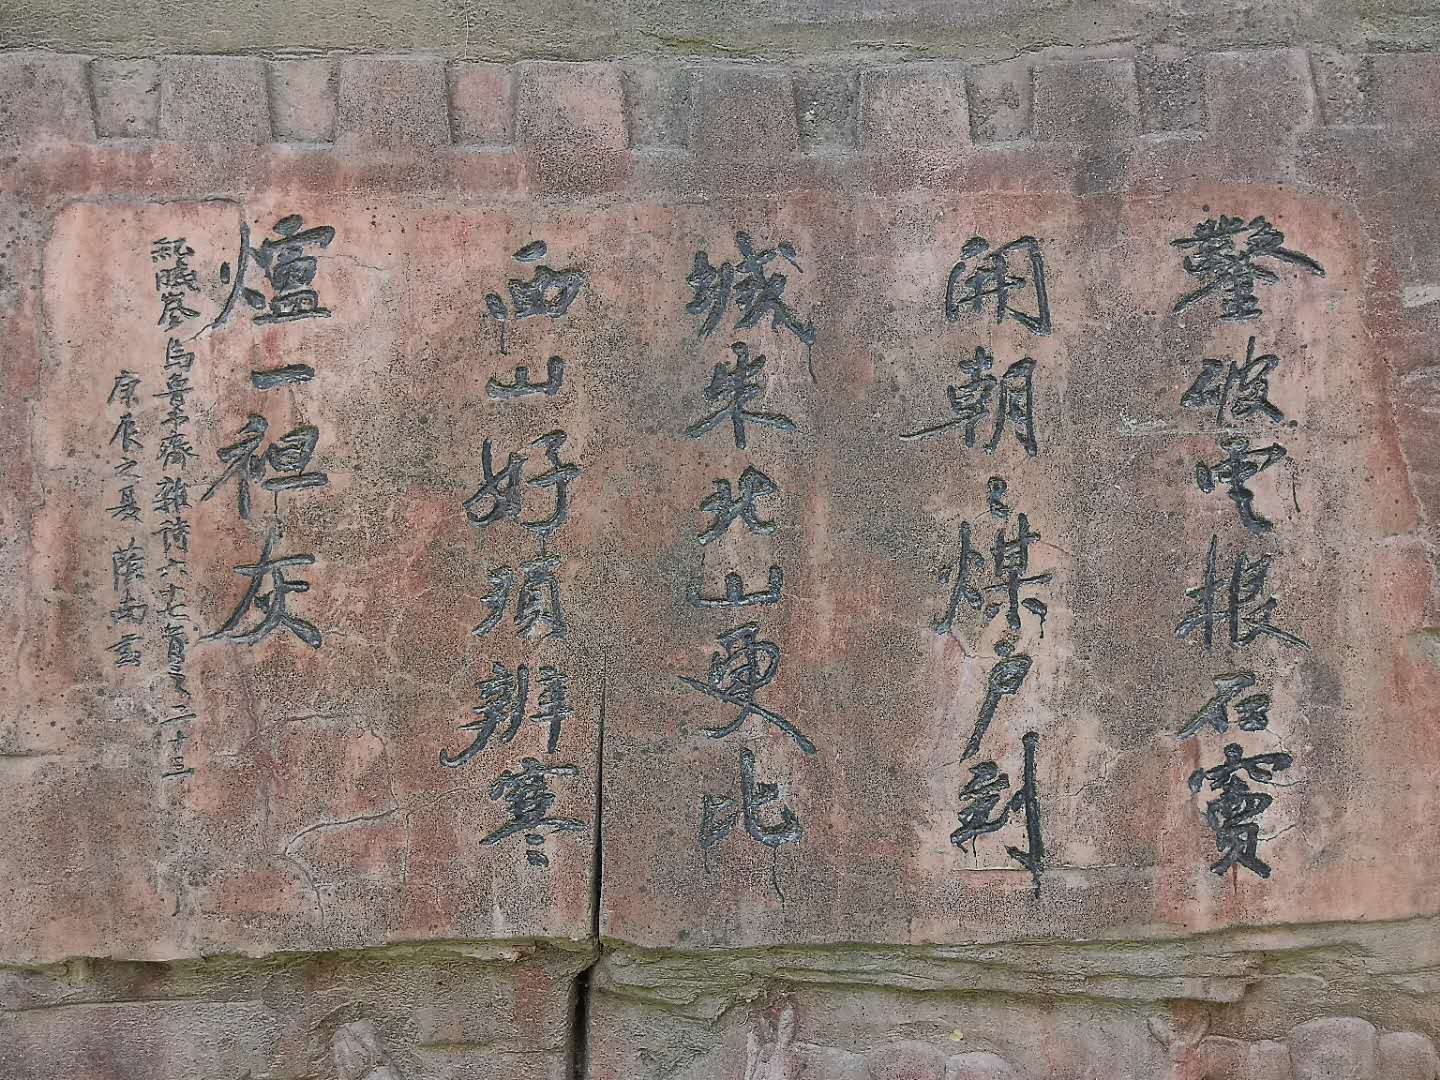 鑿破雲根石竇
開朝〻煤户到
城来北山更比
西山好須辨寒
爐一袒灰
紀曉嵐烏魯木齊雜詩六十七首之二十三
庚辰之夏 蔭南